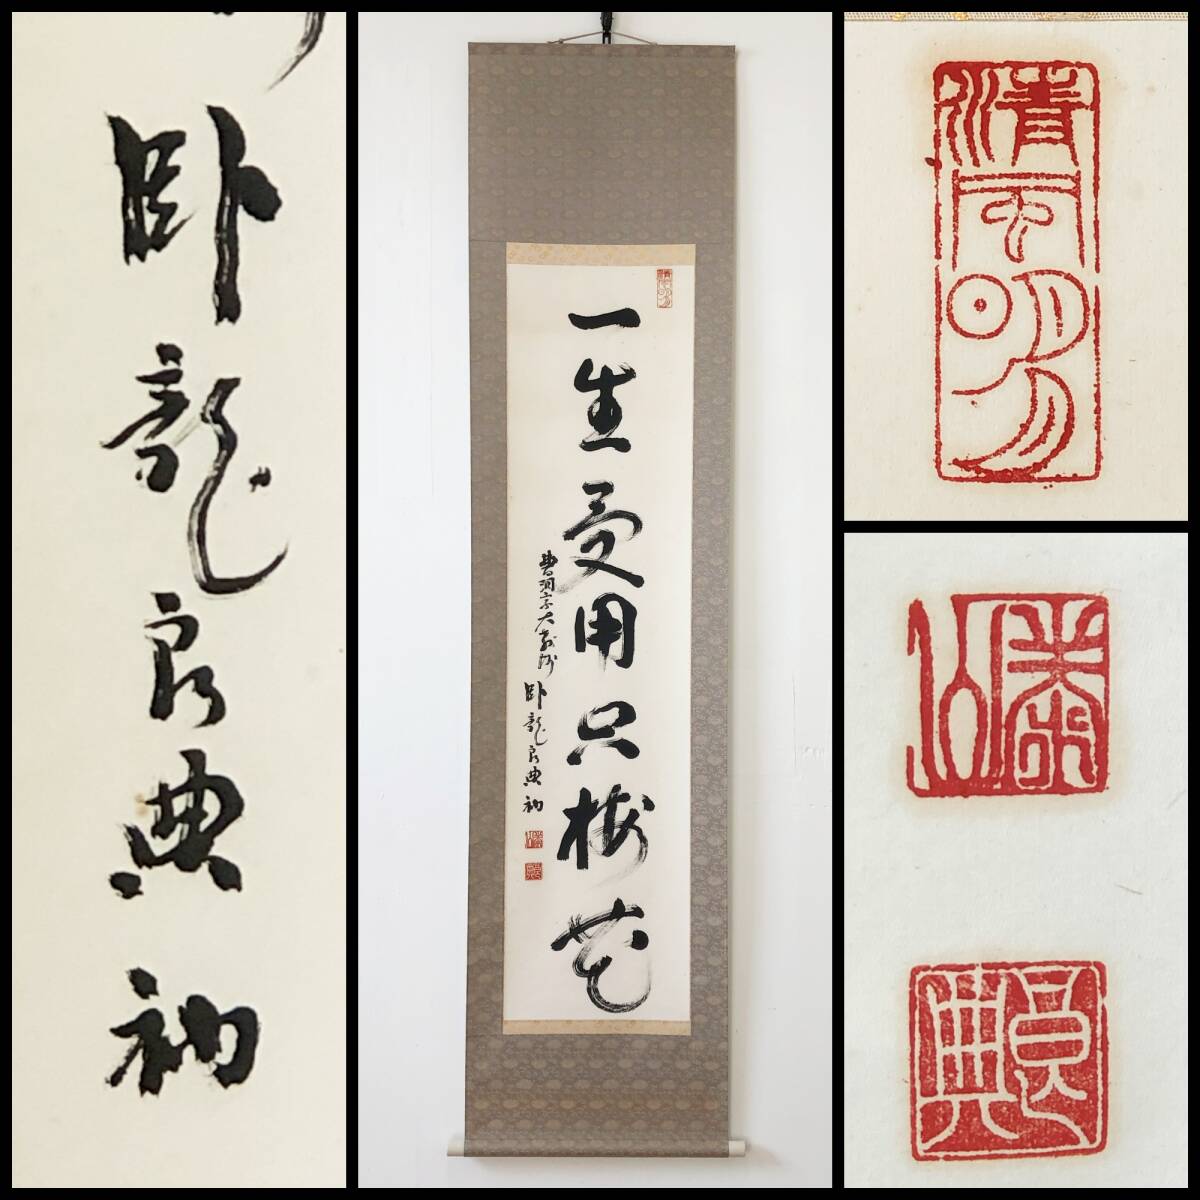 卧龍良典衲
一生受用只梅花
曹洞宗大教師
卧龍良典衲
清風明月
良典